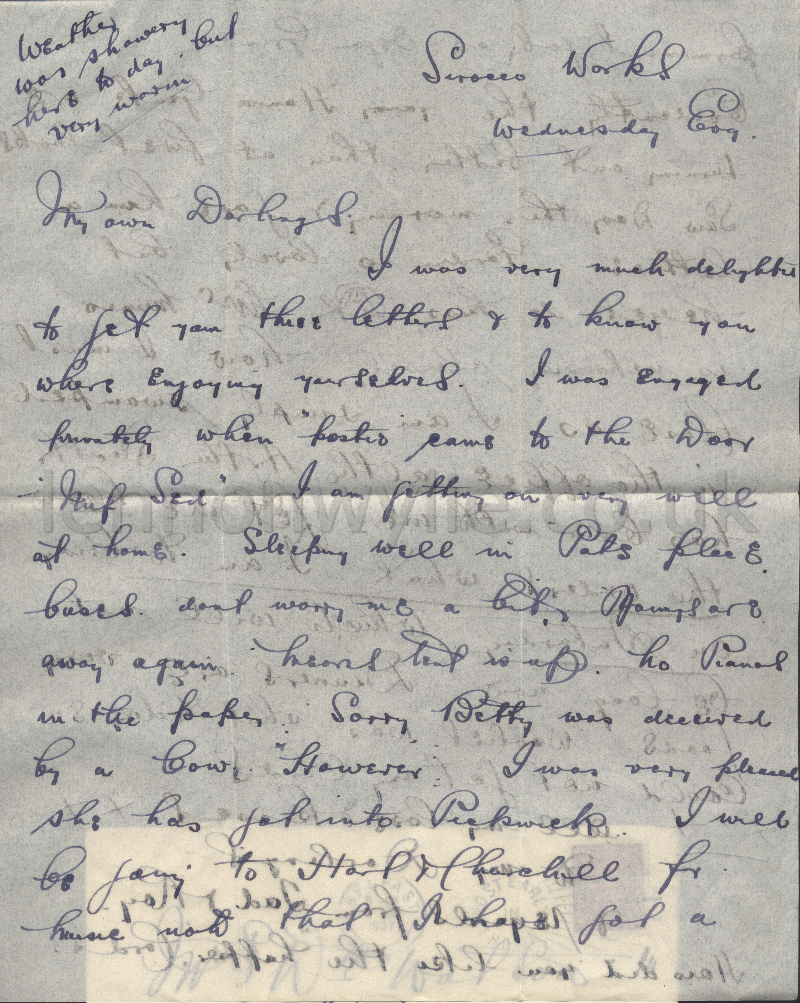 Weather
was showery
here to day but
very warm
Sirocco Works
Wednesday Evg.
My own Darlings.
I was very much delighted
to get your three letters & to know you
where enjoying yourselves. I was engaged
privately when "postie came to the Door
"Nuf Sed" I am getting on very well
at home. Sleeping well in Pats place.
buses dont worry me a bit. are
away again tent is up. no Pianos
in the paper. Sorry Betty was deceived
by a Cow. "However" I was very pleased
she has got into Pickwick. I will
be going to Hart & Churchill for
music now that I have got a
lennonwylie.co.uk